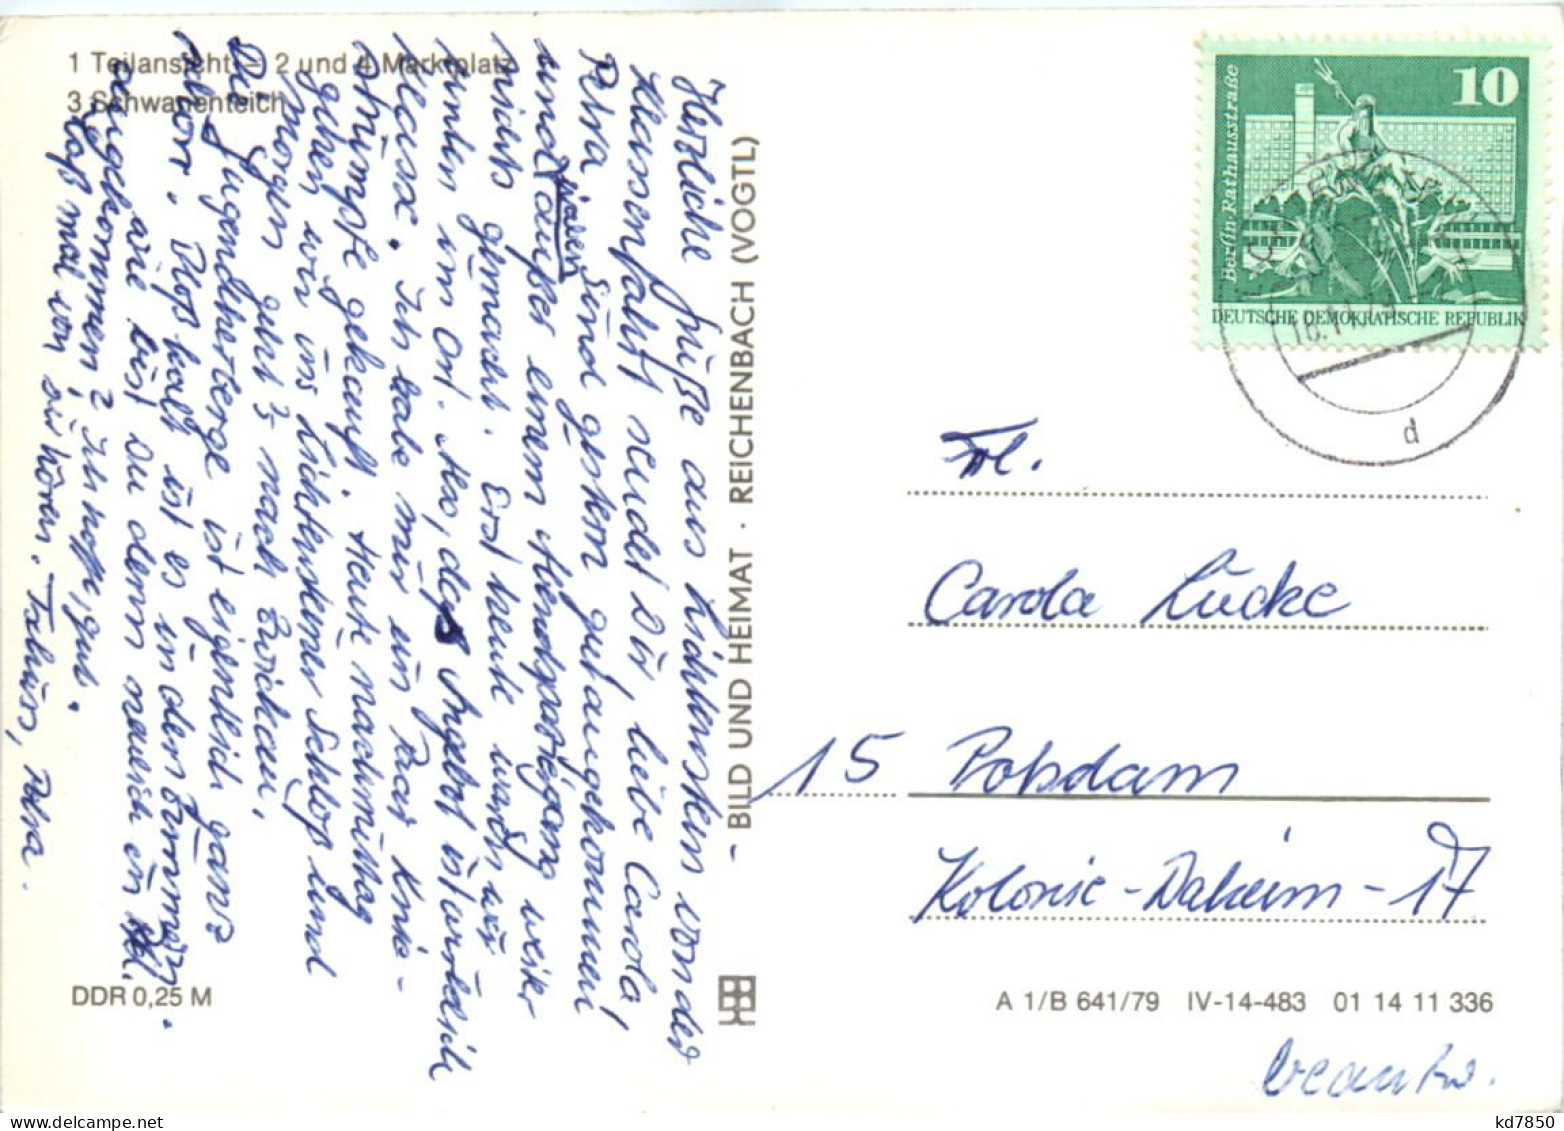 1 Teilansicht – 2 und 4 Marktplatz
3 Schwanenteich
Herzliche Grüße aus Lichtenstein von der
Klassenfahrt sendet Dir, liebe Carola
Petra! Sind gestern gut angekommen
und haben außer einem Abendspaziergang weiter
nichts gemacht. Erst heute waren wir
unten im Ort. Also, das Angebot ist wirklich
Klasse. Ich habe mir ein Paar Knie-
strümpfe gekauft. Heute nachmittag
gehen wir ins Lichtensteiner Schloß und
morgen geht's nach Zwickau.
Die Jugendherberge ist eigentlich ganz
Bloß kalt ist es in den Zimmern.
Wie bist Du denn neulich in
angekommen? Ich hoffe, gut.
Laß mal von Dir hören. Tschüß, Petra.
BILD UND HEIMAT · REICHENBACH (VOGTL)
10
Berlin, Rathausstraße
DEUTSCHE DEMOKRATISCHE REPUBLIK
d
Frl.
Carola Lücke
15 Potsdam
Kolonie-Daheim-17
DDR 0,25 M
A 1/B 641/79 IV-14-483 01 14 11 336
beantw.
kd7850